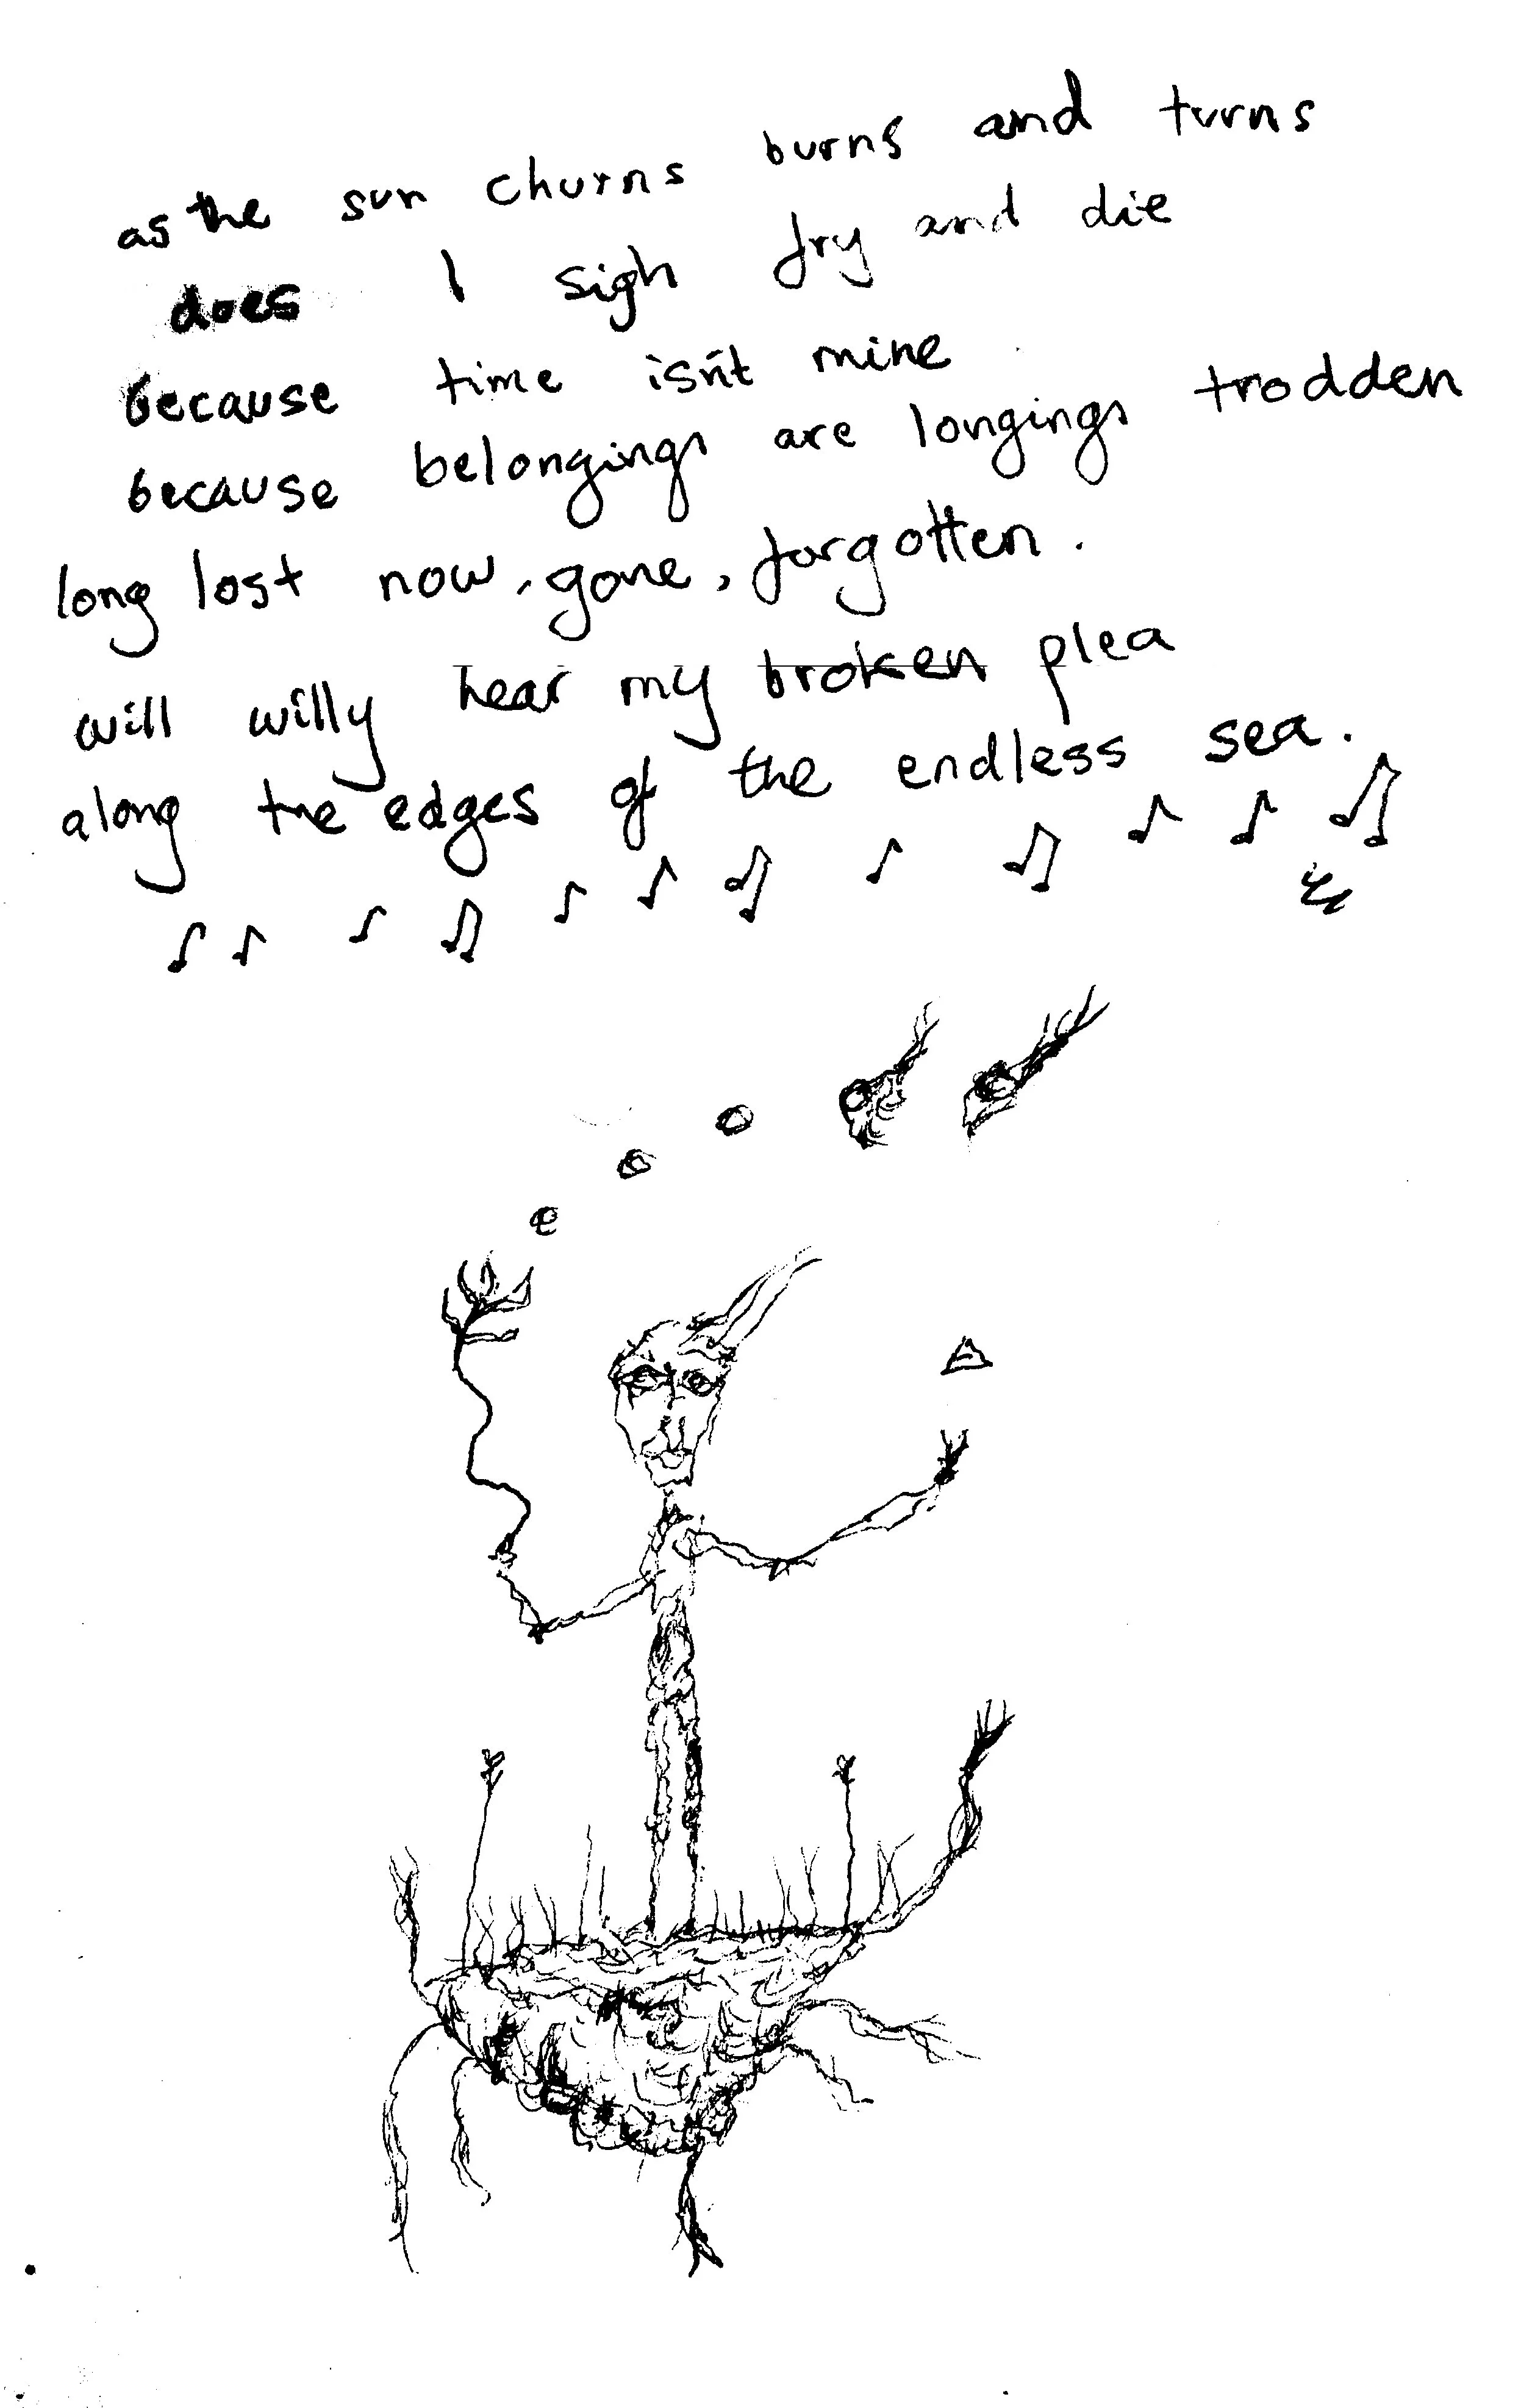 as the sun churns burns and turns
does I sigh fry and die
because time isn't mine
because belongings are longings trodden
long lost now, gone, forgotten.
will willy hear my broken plea
along the edges of the endless sea.